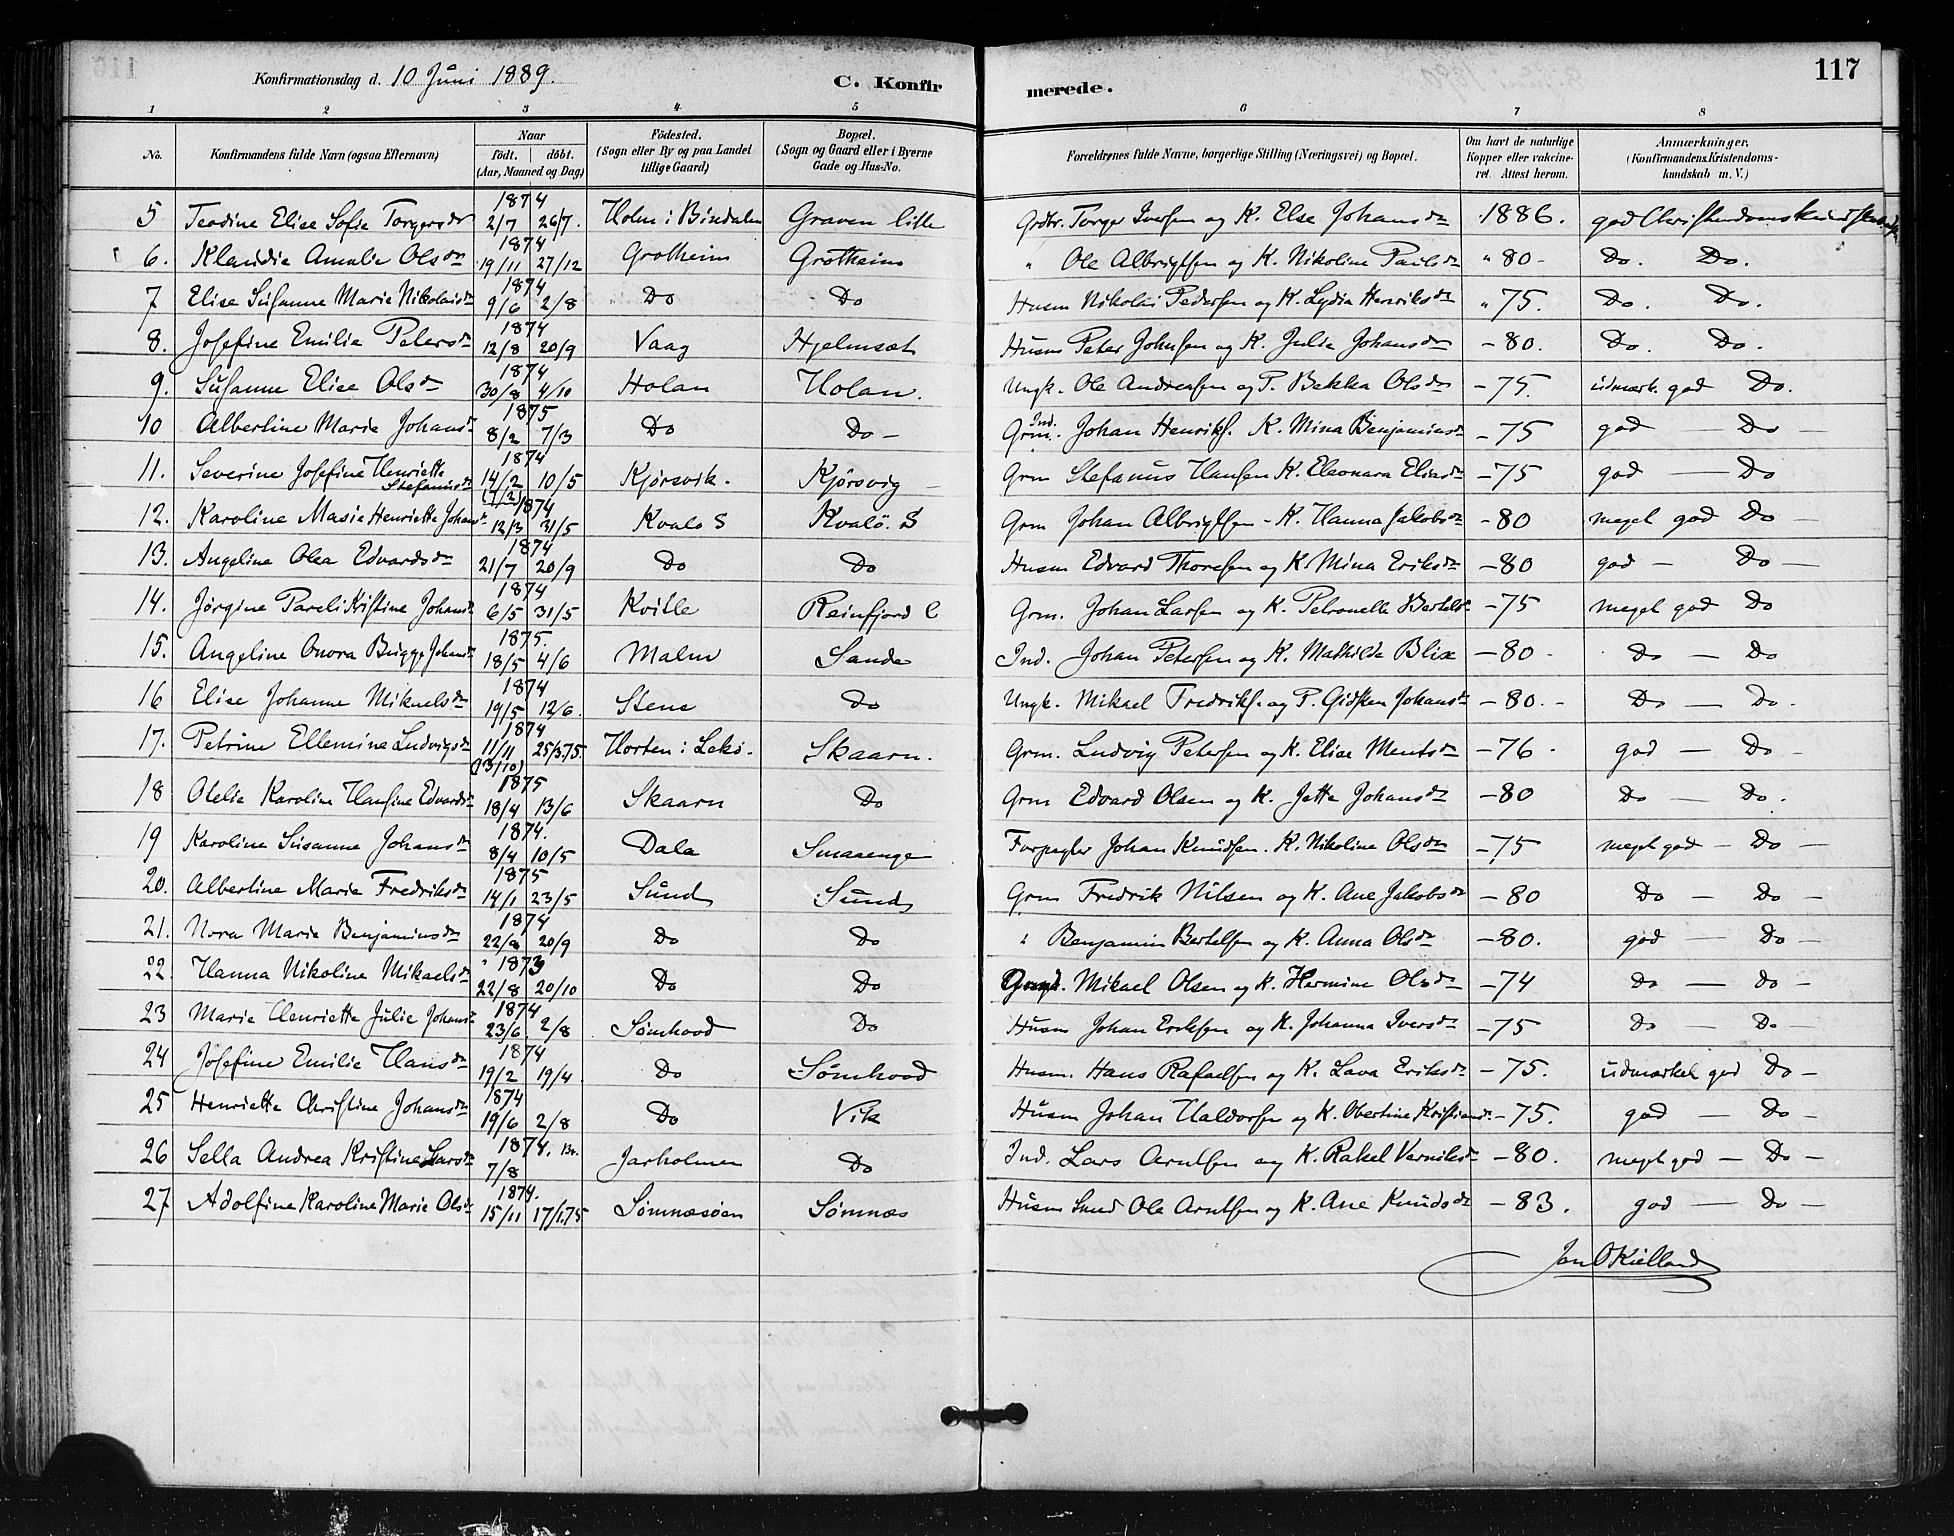 117
Konfirmationsdag d. 10 Juni 1889. C. Konfirmerede.
1 2 3 4 5 6 7 8
No. Konfirmandens fulde Navn (ogsaa Efternavn) Naar født. døbt. (Aar, Maaned og Dag) Fødested. (Sogn eller By og paa Landet tillige Gaard) Bopæl. (Sogn og Gaard eller i Byerne Gade og Hus-No. Forældrenes fulde Navne, borgerlige Stilling (Næringsvei) og Bopæl. Om havt de naturlige Kopper eller vakcineret. Attest herom. Anmærkninger. (Konfirmandens Kristendomskundskab m. V.)
5 Teodine Elise Sofie Torgersdr 1874 2/7 26/7. Holm i Bindalen Graven lille Torger Iversen og K. Else Johansdr 1886. god Christendomskundskab
6. Klaudia Amalie Olsdr 1874 19/11 27/12 Grotheim Grotheim " Ole Albrigtsen og K. Nikoline Paulsdr " 80 - Do. Do.
7 Elise Susanne Marie Nikolaisdr 1874 9/6 2/8 Do Do Husm Nikolai Pedersen og K. Lydia Henriksdr " 75. Do. Do.
8. Josefine Emilie Petersdr 1874 12/8 20/9 Vaag Hjelmsæt Husm Peter Johnsen og K. Julia Johansdr - 80. Do. Do.
9. Susanne Elise Olsdr 1874 30/8 4/10 Holan Holan. Ungk. Ole Andreasen og P. Bekka Olsdr - 75. udmærk. god Do.
10 Albertine Marie Johansdr 1875 8/2 7/3 Do Do - Ind. Grm. Johan Henriks. K. Mina Benjaminsdr - 75 god - Do -
11. Severine Josefine Henriette Stefanusdr 1874 14/2 (7/2) 10/5 Kjørsvik. Kjørsvig - Grm Stefanus Hansen K. Eleonara Eliasdr - 75 god - Do
12. Karoline Masie Henriette Johansdr 1874 12/3 31/5 Kvalø S Kvalö. S Grm Johan Albrigtsen - K. Hanna Jakobsdr - 80 meget god Do -
13. Angeline Olea Edvardsdr 1874 21/7 20/9 Do Do Husm Edvard Thoresen og K. Mina Eriksdr - 80 god - Do -
14. Jørgine Pareli Kristine Johansdr 1874 6/5 31/5 Kvitle Reinfjord Grm. Johan Larsen og K. Petronelle Bertelsdr - 75 meget god Do
15. Angeline Onora Bugge Johansdr 1875. 18/5 4/6 Malm Sande Ind. Johan Petersen og K. Mathilde Blix - 80 - Do - Do
16 Elise Johanne Mikaelsdr 1874 19/5 12/6. Stene Do Ungk. Mikael Fredriks. og P. Gidsken Johansdr - 80. - Do - Do.
17. Petrine Ellemine Ludvigsdr 1874 11/11 (13/10) 25/3.75. Horten i Lekø. Skaarn. Grm. Ludvig Petersen og K. Elise Mentsdr - 76 - god - Do -
18 Olelia Karoline Hansine Edvardsdr 1875 18/4 13/6 Skaarn Do Grm Edvard Olsen og K. Jette Johansdr - 80 Do - Do.
19 Karoline Susanne Johansdr 1874. 8/4 10/5 Dala Smaaenge Forpagter Johan Knudsen. K. Nikoline Olsdr - 75 meget god - Do -
20. Albertine Marie Fredriksdr 1875 14/1 23/5 Sund Sund Grm Fredrik Nilsen og K. Ane Jakobsdr - 80 Do - Do -
21. Nora Marie Benjaminsdr 1874 22/8 20/9 Do Do " Benjamin Bertelsen og K. Anna Olsdr - 80. god - Do -
22. Hanna Nikoline Mikaelsdr 1873 22/8 20/10 Do Do Mikael Olsen og K. Hermine Olsdr - 74 Do - Do -
23 Marie Henriette Julie Johansdr 1874 23/6. 2/8 Sømhovd Do Husm Johan Eriksen og K. Johanna Iversdr - 75 Do - Do -
24 Josefine Emilie Hansdr 1874 19/2 19/4. Do Sømhovd Husm. Hans Rafaelsen og K. Lava Eriksdr - 75. udmærket god Do -
25 Henriette Christine Johansdr 1874 19/6 2/8 Do Vik Husm Johan Haldorsen og K. Obertine Kristiansdr. - 75. god - Do -
26 Sella Andrea Kristine Larsdr 1874. 7/8 Jarholmen Do Ind. Lars Arntsen og K. Rakel Verniksdr - 80. meget god - Do -
27 Adolfine Karoline Marie Olsdr 1874. 15/11 17/1.75 Sømnæsøen Sømnæs Husm Smed Ole Arntsen og K. Ane Knudsdr - 83. god - Do -
Jan O Kielland